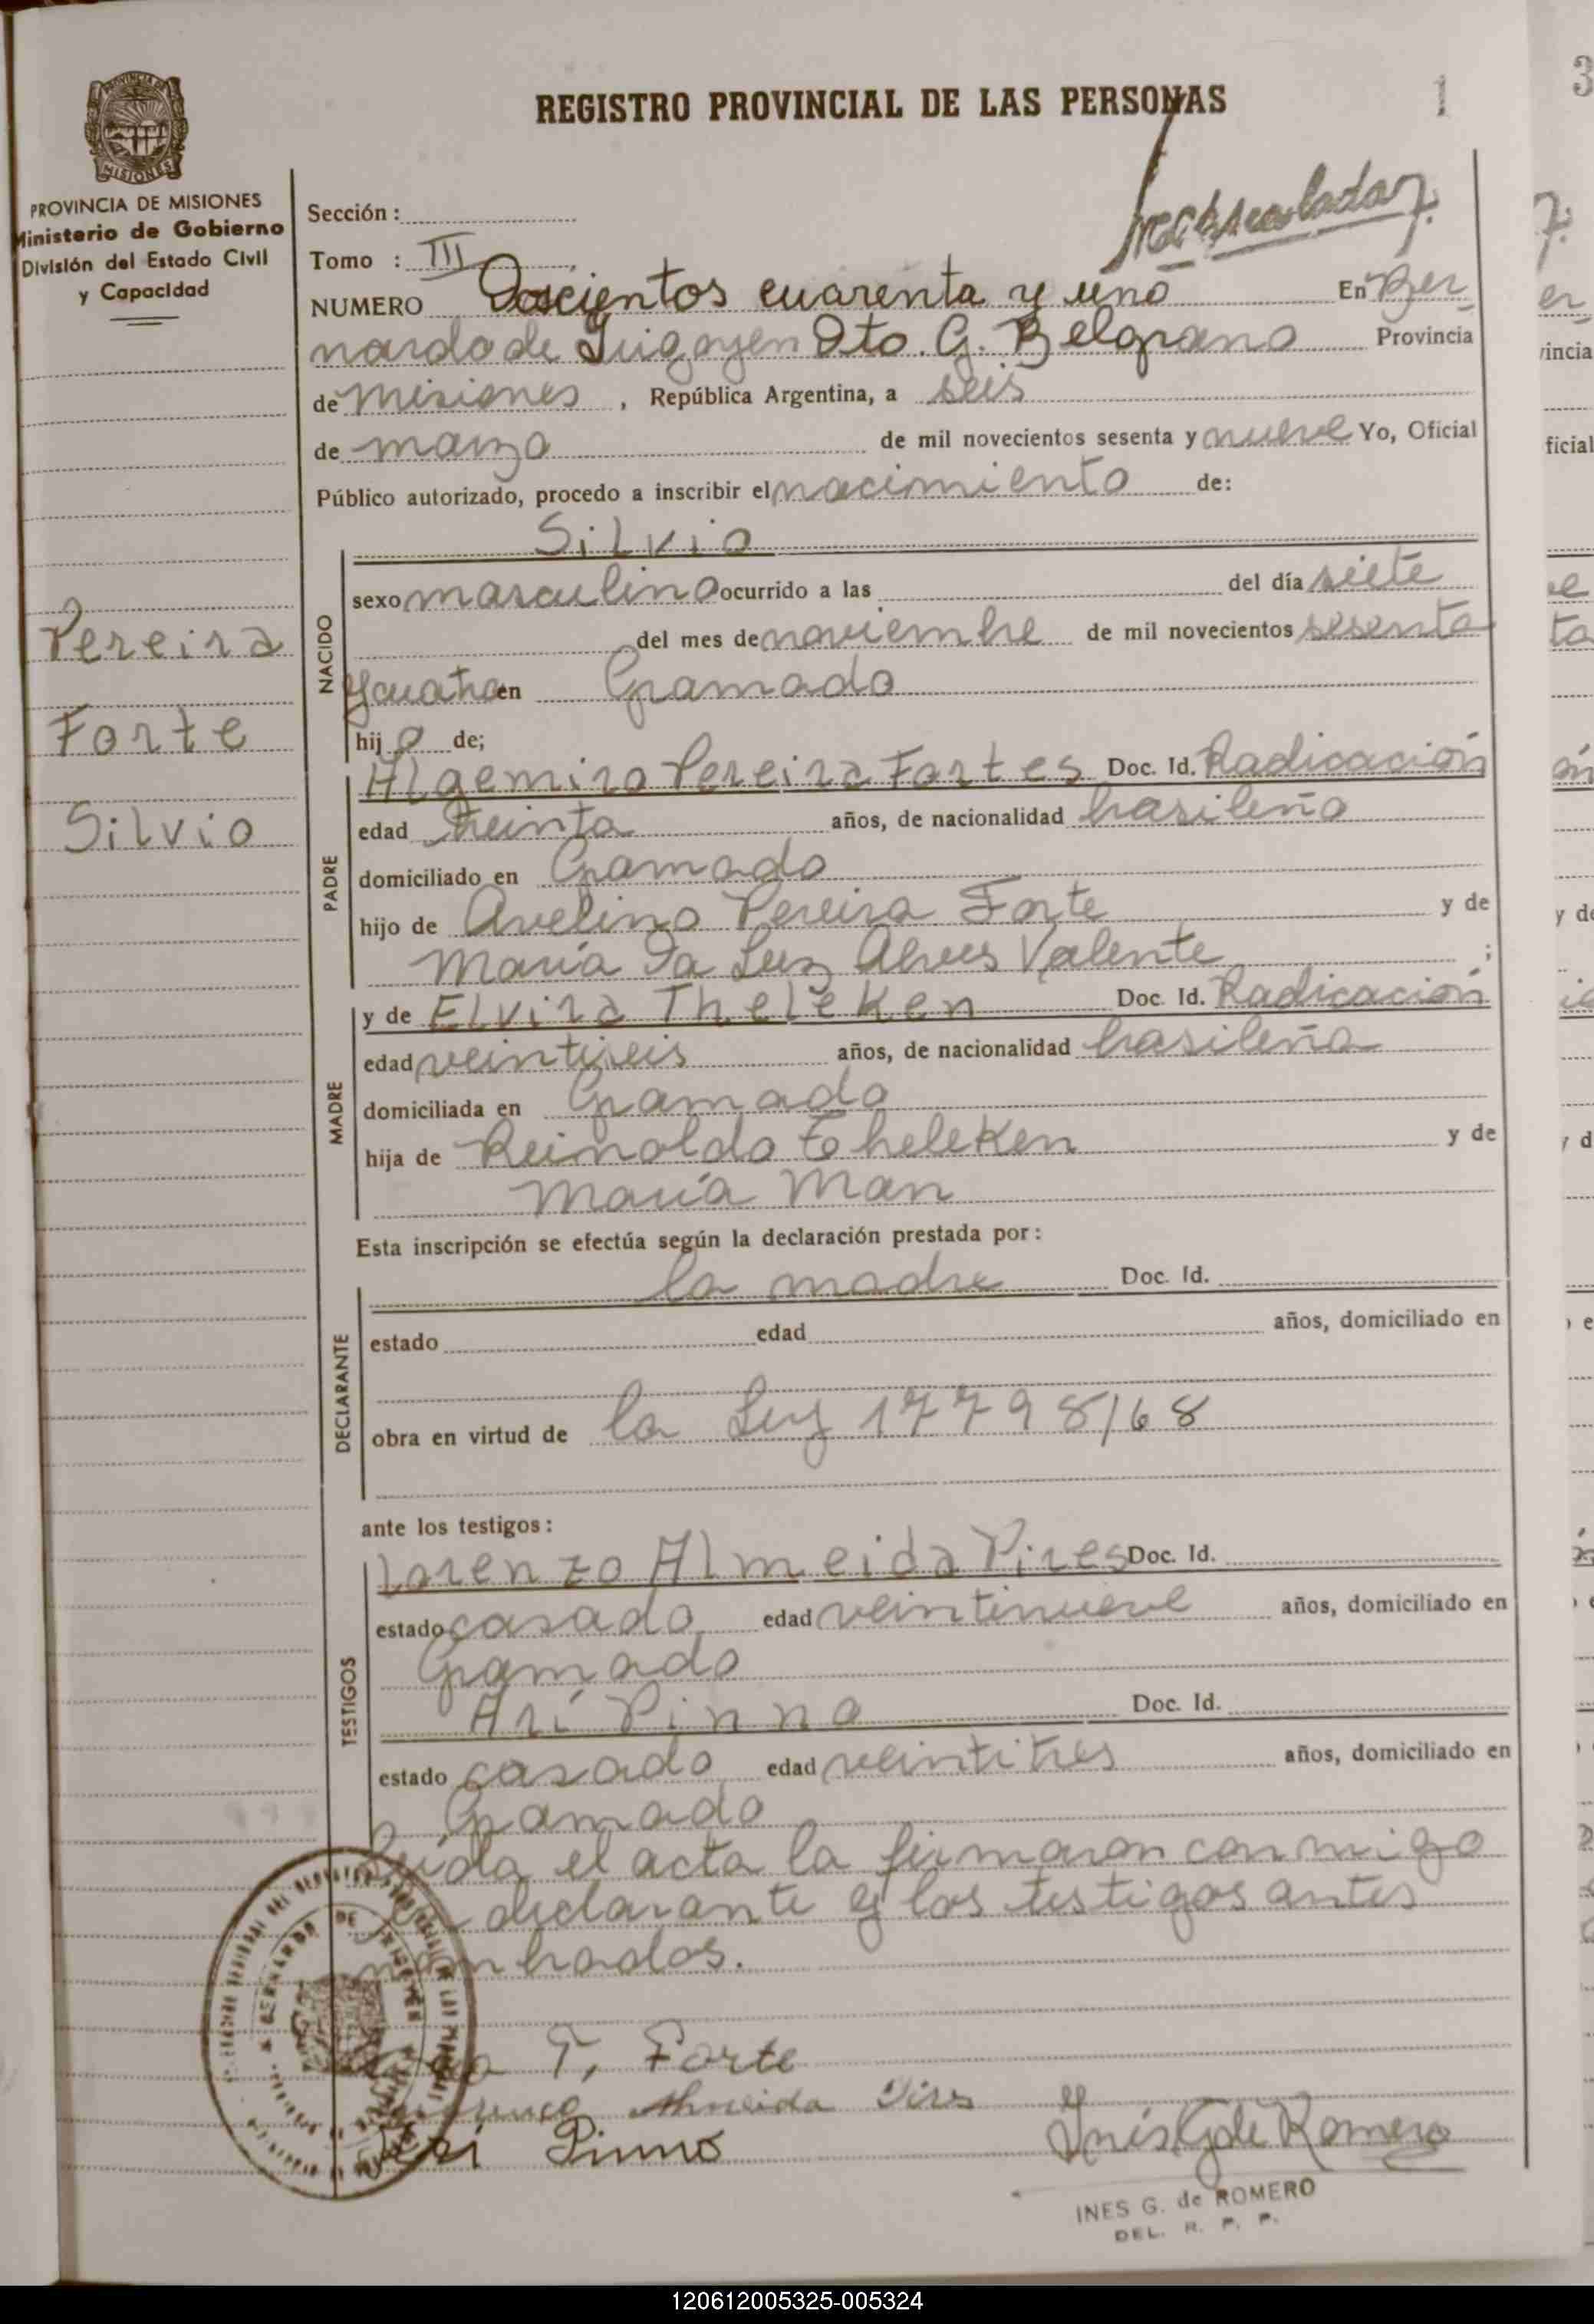 REGISTRO PROVINCIAL DE LAS PERSONAS
1
3
MISIONES
PROVINCIA DE MISIONES
Ministerio de Gobierno
División del Estado Civil
y Capacidad
Sección :
Tomo : III
NUMERO Doscientos cuarenta y uno En Ber
nardo de Irigoyen Dto. G. Belgrano Provincia
de Misiones , República Argentina, a seis
de marzo de mil novecientos sesenta y nueve Yo, Oficial
Público autorizado, procedo a inscribir el nacimiento de:
Silvio
NACIDO
sexo masculino ocurrido a las del día siete
del mes de noviembre de mil novecientos sesenta
y cuatro en Gramado
hij o de;
Pereira
Forte
Silvio
PADRE
Algemiro Pereira Fortes Doc. Id. Radicación
edad treinta años, de nacionalidad brasileño
domiciliado en Gramado
hijo de Avelino Pereira Forte y de
María Da Luz Alves Valente ;
MADRE
y de Elvira Theleken Doc. Id. Radicación
edad veintiseis años, de nacionalidad brasileña
domiciliada en Gramado
hija de Reinoldo Theleken y de
María Man
Esta inscripción se efectúa según la declaración prestada por :
DECLARANTE
la madre Doc. Id.
estado edad años, domiciliado en
obra en virtud de la Ley 17798/68
ante los testigos :
TESTIGOS
Lorenzo Almeida Pires Doc. Id.
estado casado edad veintinueve años, domiciliado en
Gramado
Arí Pinno Doc. Id.
estado casado edad veintitres años, domiciliado en
Gramado
Leída el acta la firmaron conmigo
la declarante y los testigos antes
nombrados.
T. Forte
Almeida Pires
Ari Pinno
Inés G de Romero
INES G. de ROMERO
DEL. R. P. P.
120612005325-005324